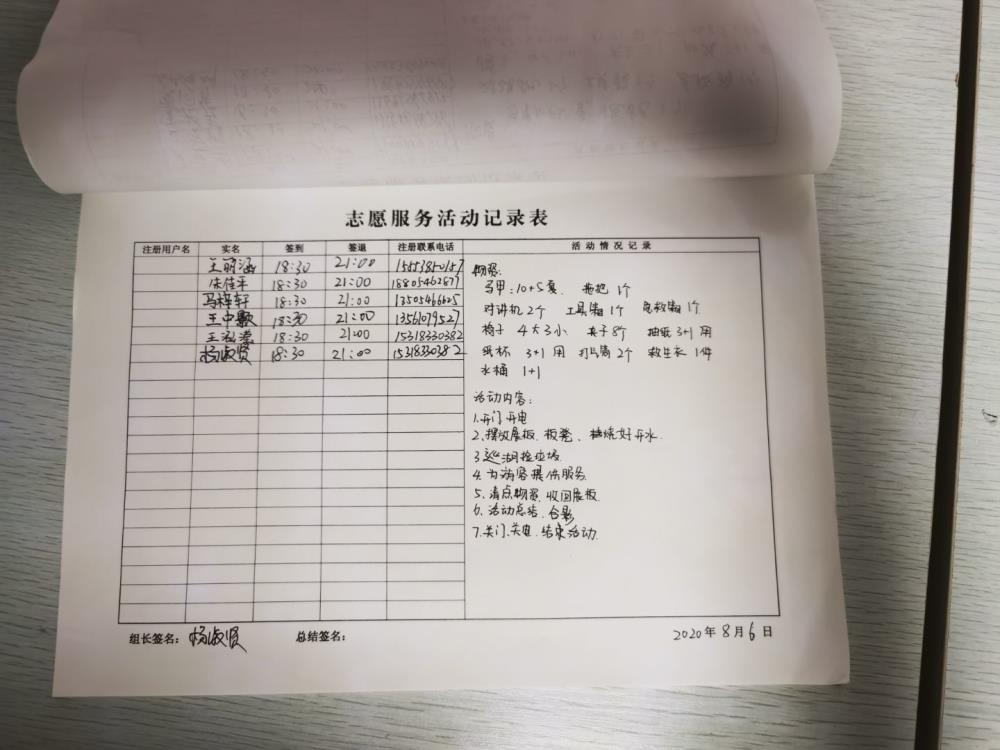 志愿服务活动记录表
注册用户名 实名 签到 签退 注册联系电话 活动情况记录
18:30 21:00 15553850157
18:30 21:00 18805462877
马梓轩 18:30 21:00 13505466625
王中 18:30 21:00 13561079527
王泓 18:30 21:00 15318330382
杨淑贤 18:30 21:00 15318330382
物资:
马甲:10+5复 拖把1个
对讲机2个 工具箱1个 急救箱1个
椅子 4大3小 夹子8个 抽纸3+1用
纸杯 3+1用 打气筒2个 救生衣1件
水桶 1+1
活动内容:
1.开门开电
2.摆放展板、板凳、烧好开水.
3巡湖捡垃圾.
4.为游客提供服务.
5.清点物资.收回展板.
6.活动总结.合影
7.关门、关电.结束活动.
组长签名: 杨淑贤 总结签名: 2020年8月6日